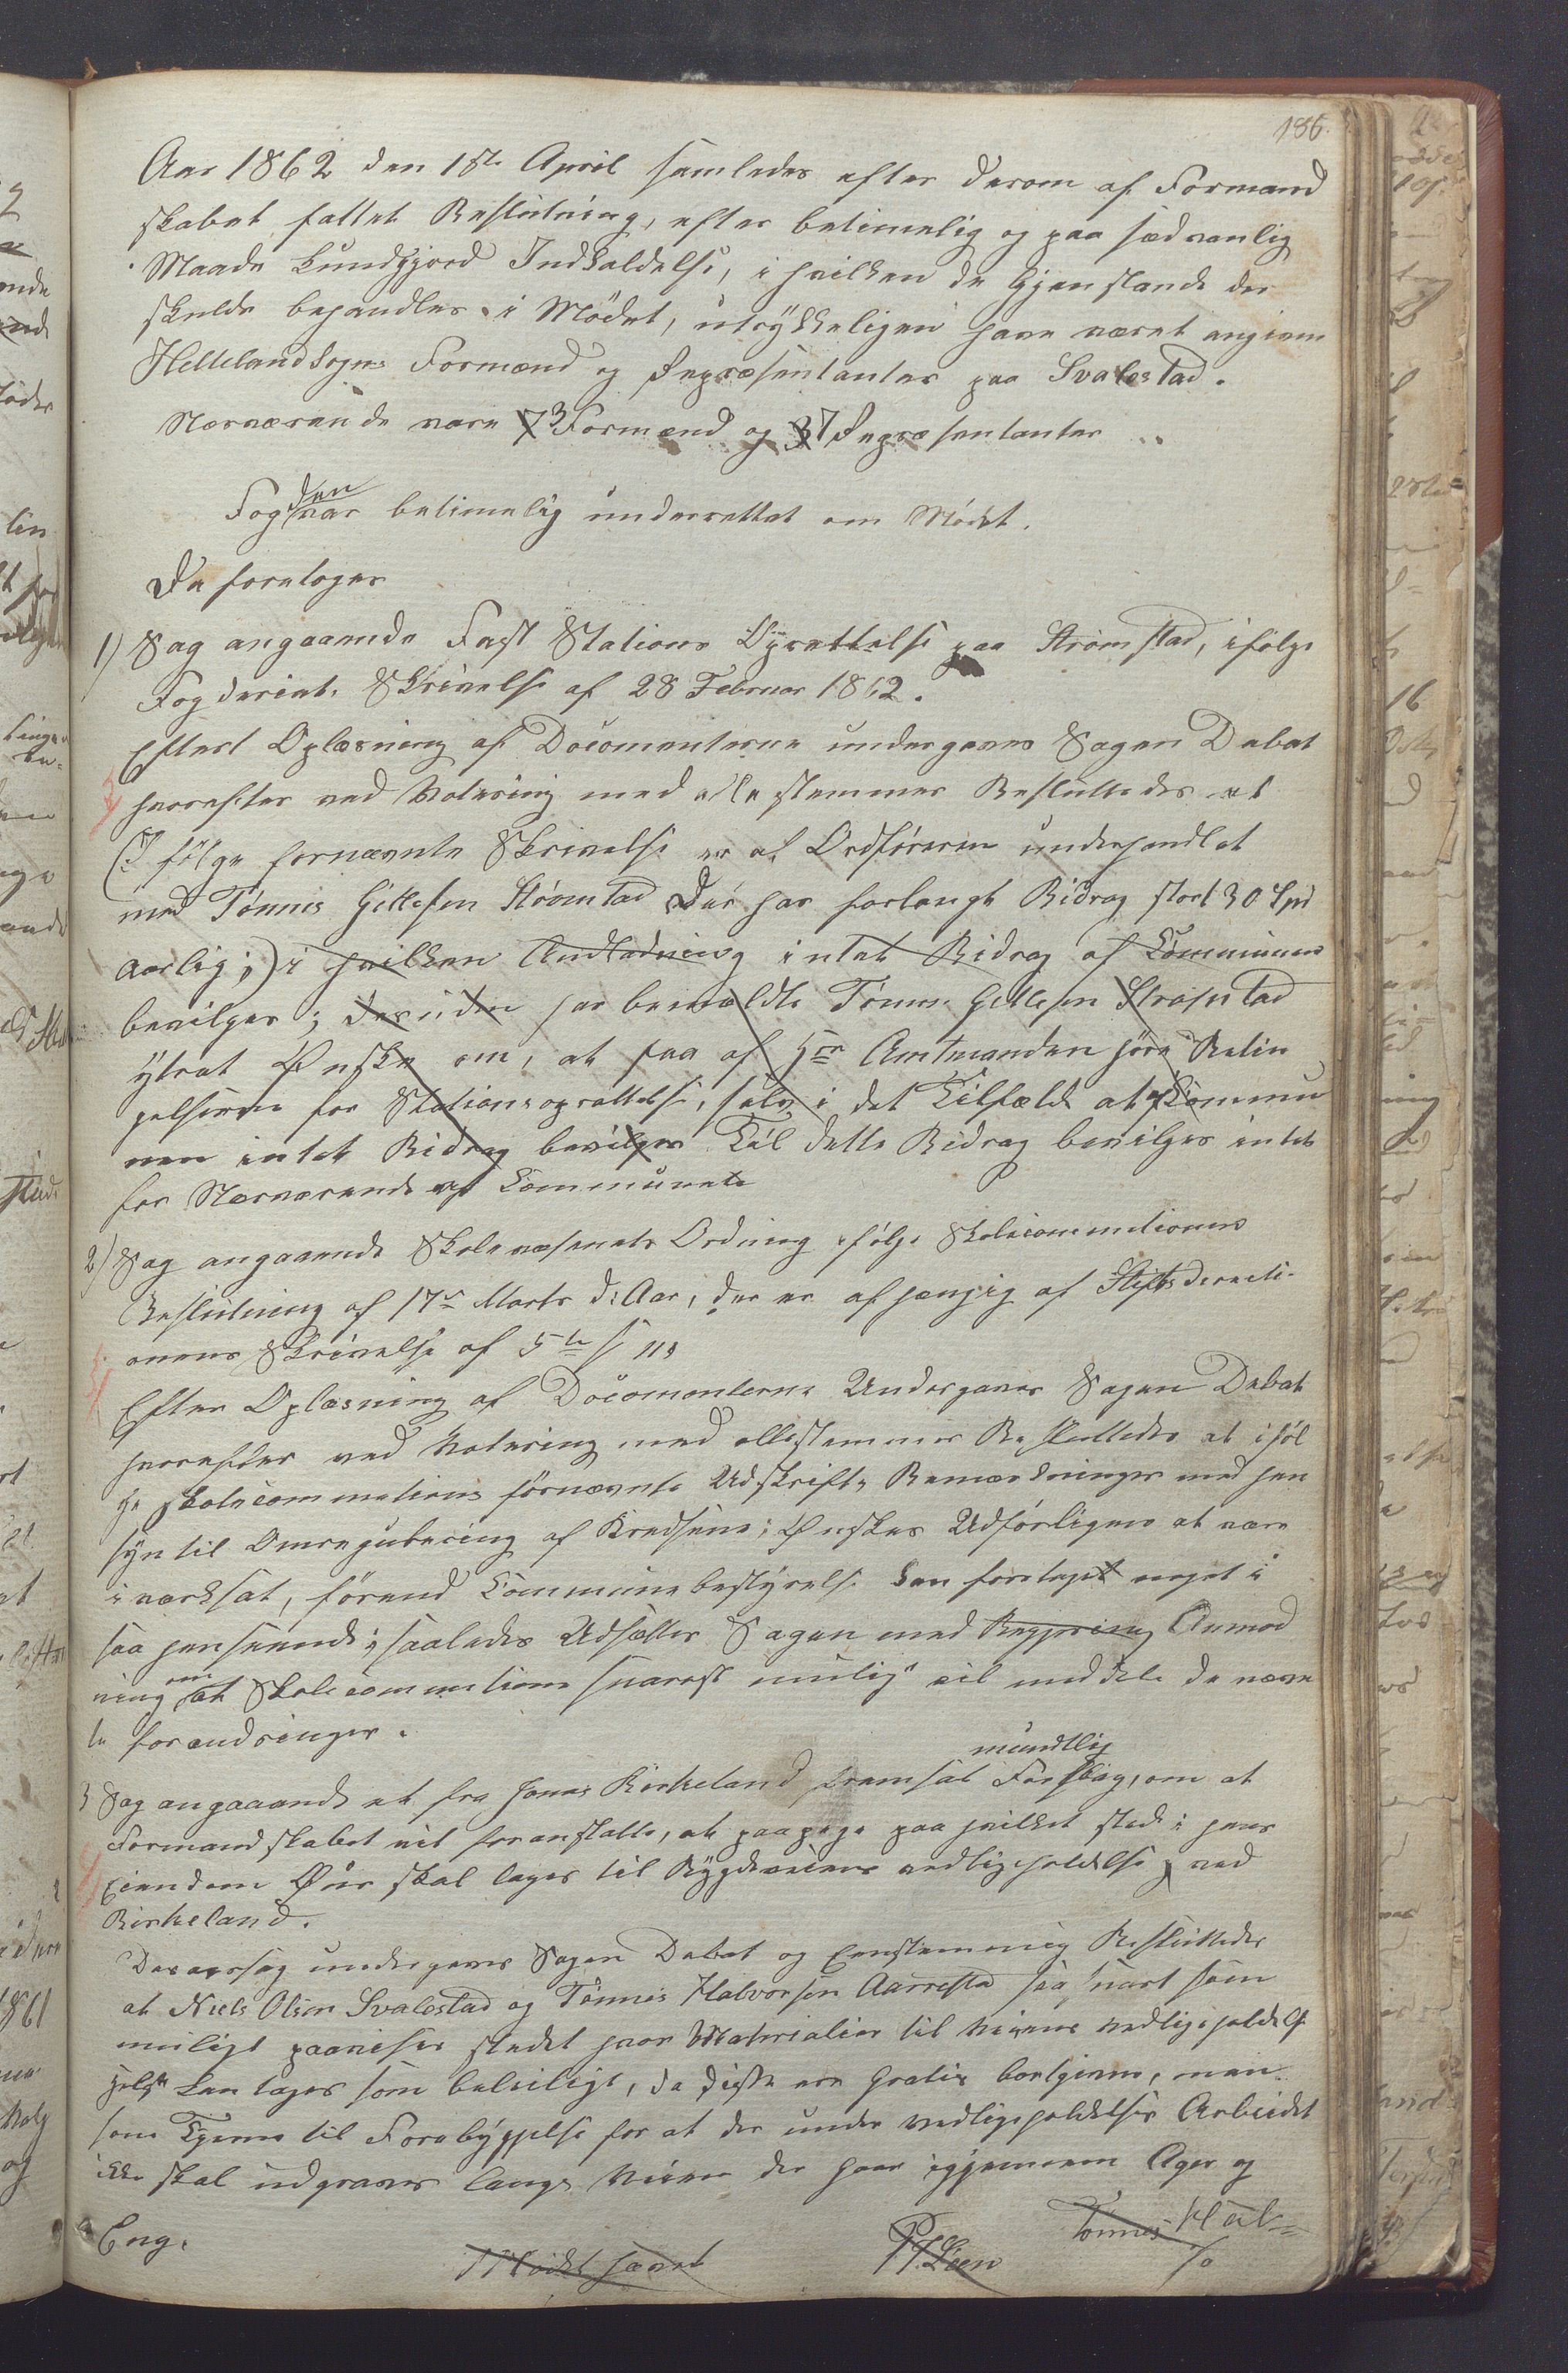 186.
Aar 1862 den 1ste April samledes efter derom af Formand
skabet fattet Beslutning, efter betimelig og paa sædvanlig
Maade kundgjord Indkaldelse, i hvilken de Gjenstande der
skulde behandles i Mødet, utrykkeligen have været angiven
Hellelands Sogns Formænd og Repræsentanter paa Svalestad.
Nærværende vare 7 3 Formænd og 3 7 Repræsentanter
Fogden var betimelig underrettet om Mødet.
Da foretoges
1) Sag angaaende Fast Stations Oprettelse paa Strømstad, ifølge
Fogderiets Skrivelse af 28 Februar 1862.
Efter Oplæsning af Documenterne undergaves Sagen Debat
hvorefter ved Votering med alle stemmer Besluttedes at
(I følge fornævnte Skrivelse er af Ordføreren underhandlet
med Tønnes Gittesen Strømstad Der har forlangt Bidrag stort 30 Spd
aarlig;) i hvilken Andledning intet Bidrag af Communen
bevilges; desuden har bemældte Tønnes Gittesen Strømstad
ytret Ønske om, at faa af Hrr Amtmanden høre Betin
gelserne for Stationsoprettelse, selv i det Tilfælde at af Commu
nen intet Bidrag bevilges Til dette Bidrag bevilges intet
for Nærværende af Communen
2) Sag angaaende Skolevæsenets Ordning ifølge Skolecommitionens
Beslutning af 17de Marts d: Aar, der er afhængig af Stiftsdirecti
onens Skrivelse af 5te
Efter Oplæsning af Documenterne Undergaves Sagen Debat
hvorefter ved Votering med alle stemmer Besluttedes at iføl
ge Skolecommitions fornævnte Udskrifts Bemærkninger med hen
syn til Omregulering af Kredsene; Ønskes Udførligere at være
iværksat, førend Communebestyrelse kan foretaget noget i
saa henseende; saaledes Udsættes Sagen med Begjering Anmod
ning om at Skolecommitionen snarest mulig vil meddele de nævn
te forandringer.
3 Sag angaaende et fra Jonas Birkeland fremsat mundtlig Forslag, om at
Formandskabet vil foranstalte, at paapege paa hvilket sted i hans
Eiendom Øur skal tages til Bygdeveiens vedligeholdelse ved
Birkeland.
Desaarsag undergaves Sagen Debat og Eenstemmig Besluttedes
at Niels Olsen Svalestad og Tønnes Halvorsen Aarrestad saa snart som
muligt paaviser stedet hvor Materialier til Veiens vedligeholdelse
kan tages som beleiligt, da disse ere Gratis bortgivne, men
som Tjene til Forebyggelse for at der under vedligeholdelses Arbeidet
ikke skal udgraves langs Veien der gaar igjennem Ager og
Eng.
Mødet hævet
Tønnes Hal=